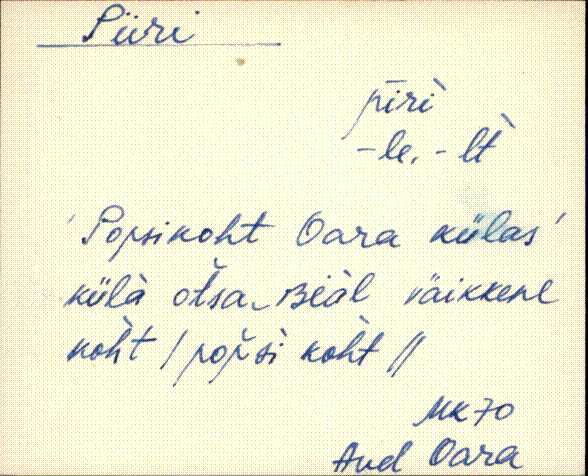 Piiri
pīri
-le, -lt
'Popsikoht Oara külas'
külà otsa piäl väikkene
koht / popsi koht //
MK 70
Aud Oara